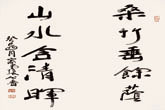 桑竹垂餘蔭
山水含清暉